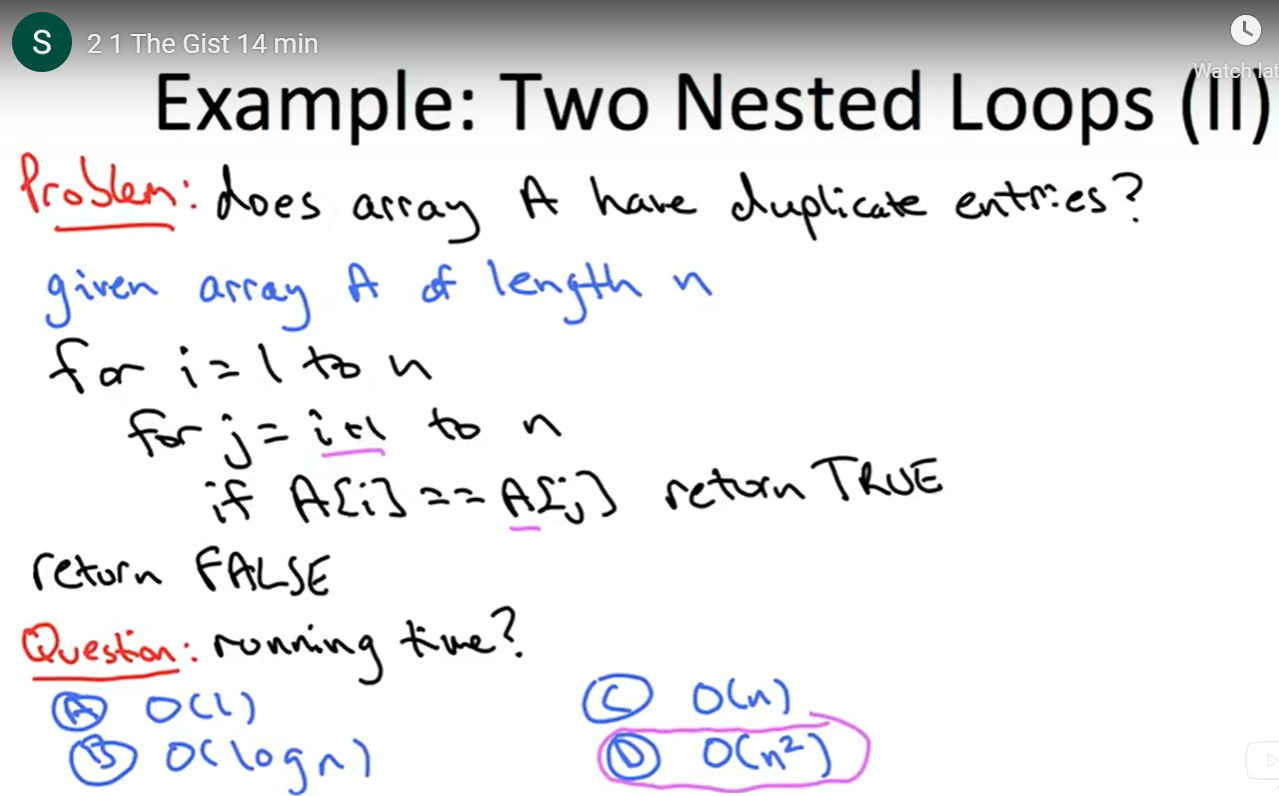 S 2 1 The Gist 14 min
Watch lat
Example: Two Nested Loops (II)
Problem: does array A have duplicate entries?
given array A of length n
for i=1 to n
for j= i+1 to n
if A[i] == A[j] return TRUE
return FALSE
Question: running time?
A O(1)
C O(n)
B O(log n)
D O(n²)